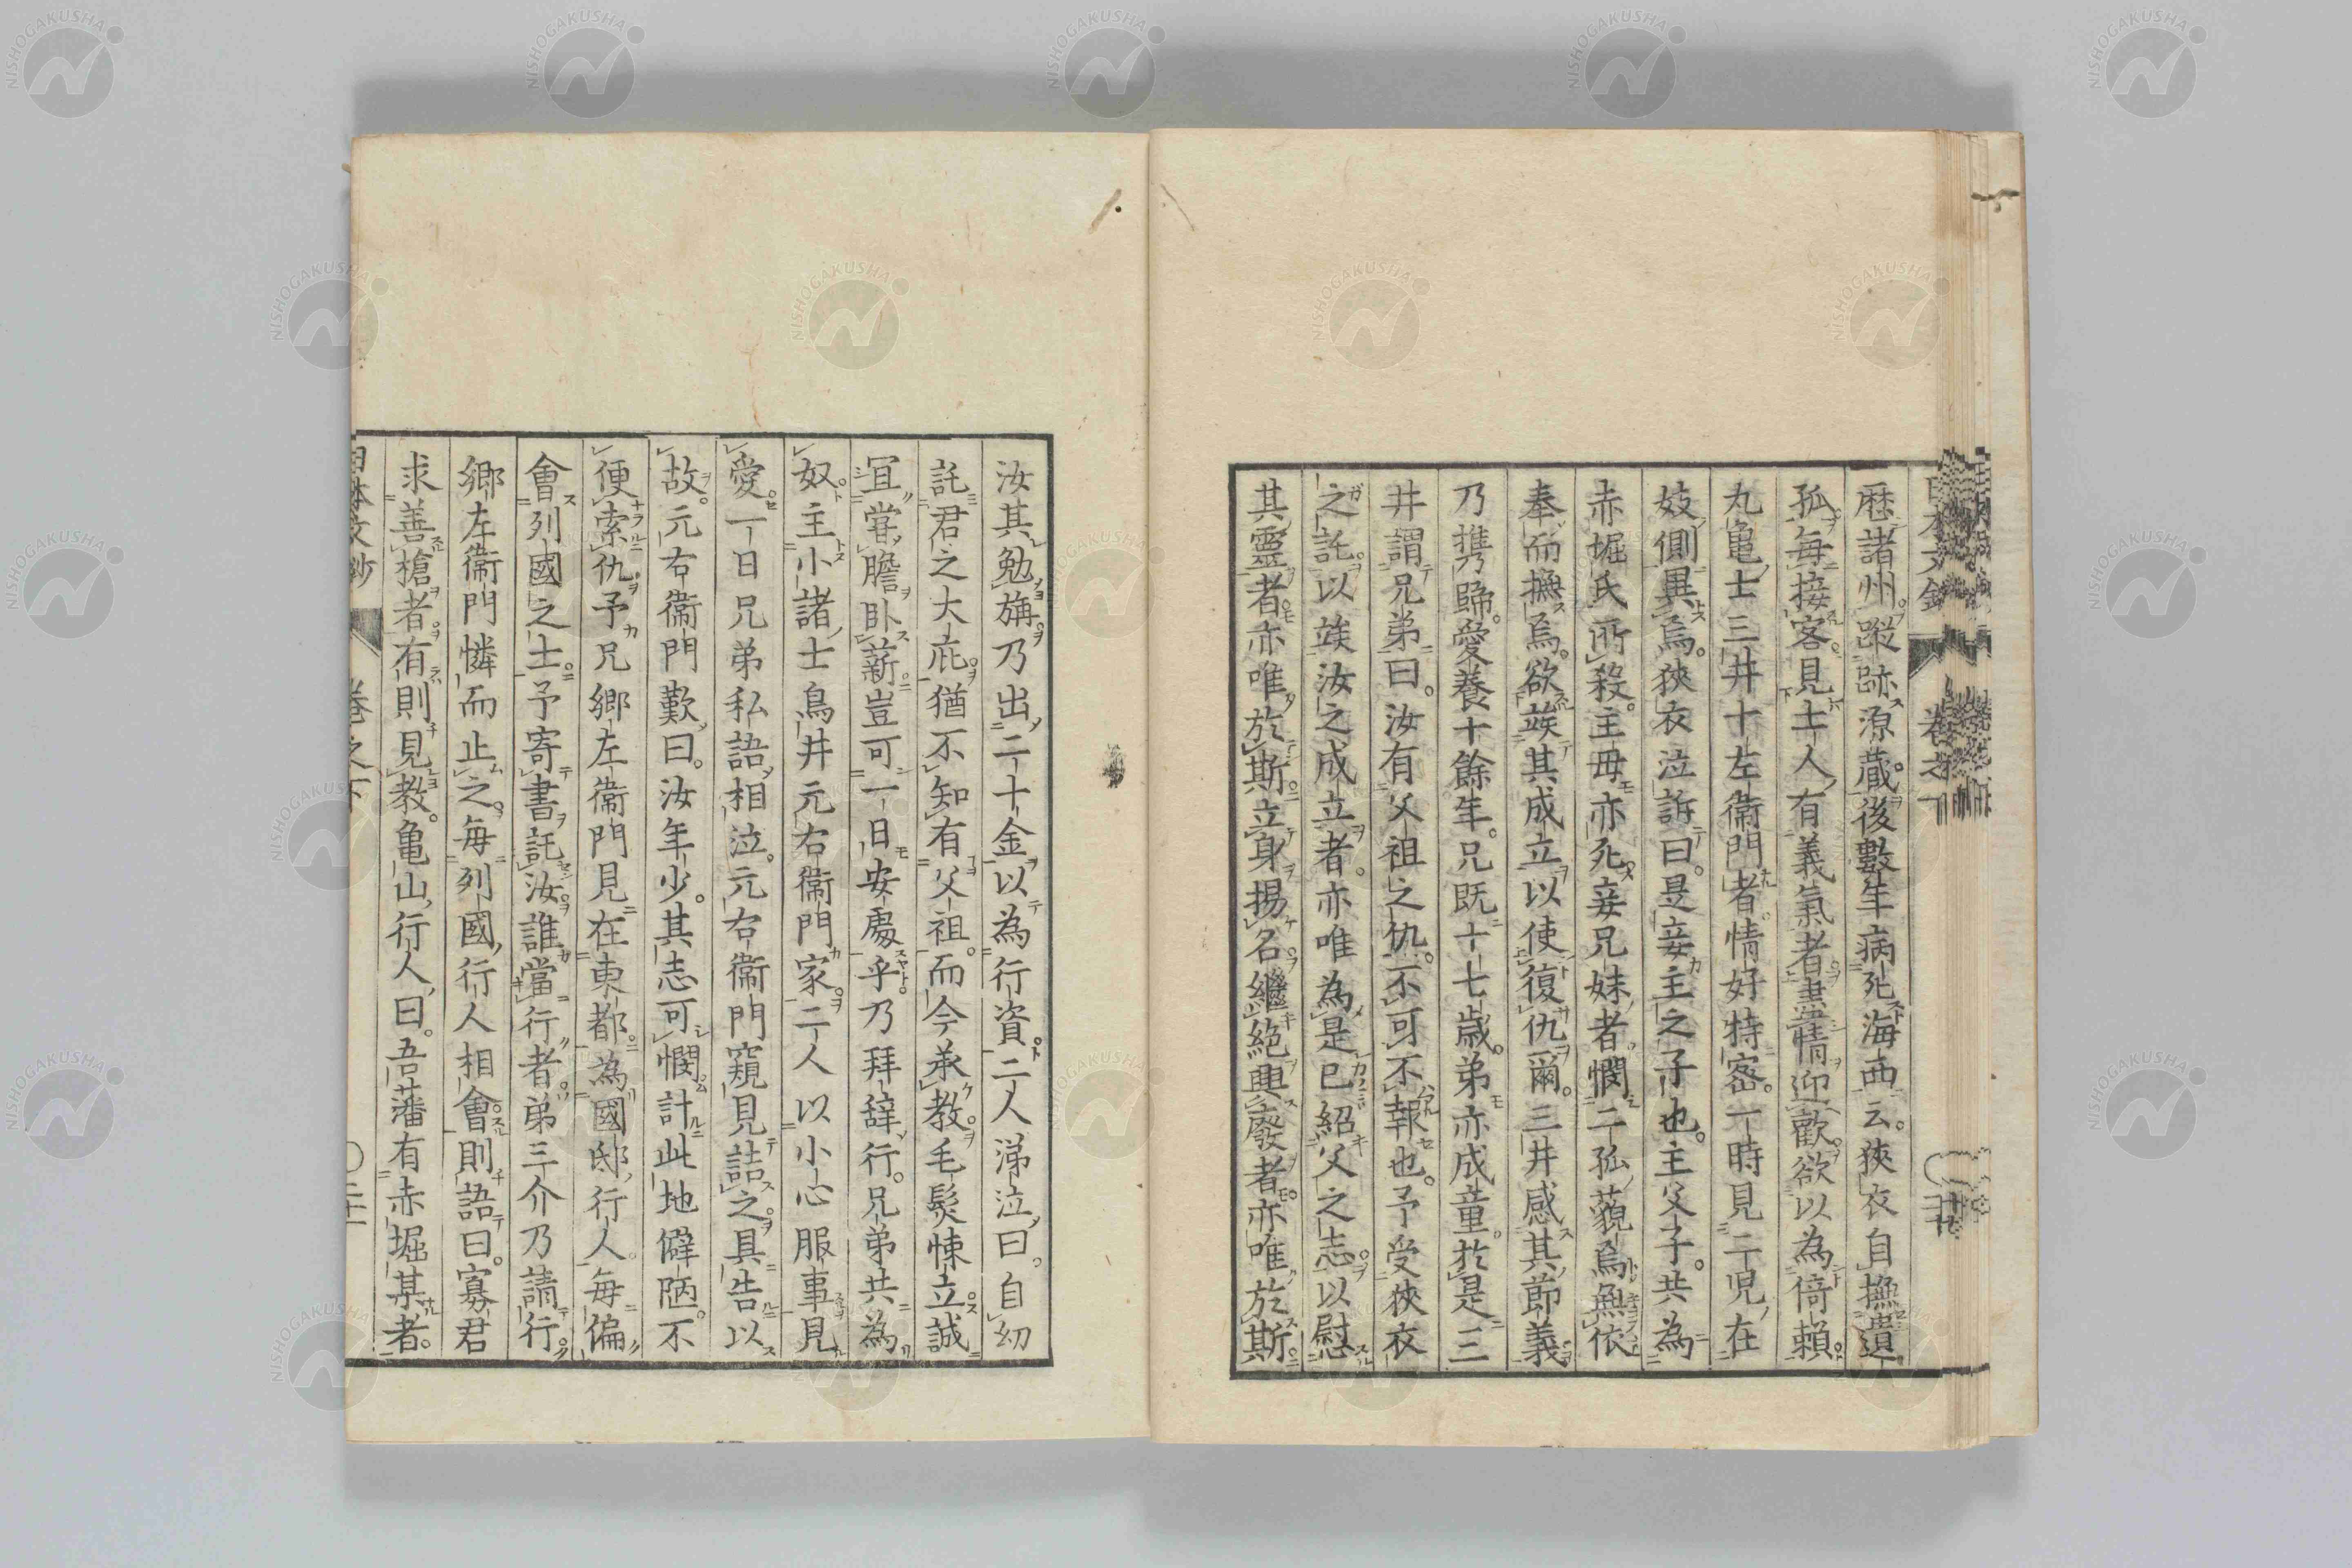 歷諸州。蹤跡源藏。後數年病死海西云。狹衣自撫遺
孤。每接客。見士人有義氣者。盡情迎歡。欲以為倚賴。
丸亀士三井十左衞門者。情好特密。一時見二児在
妓側異焉。狹衣泣訴曰。是妾主之子也。主父子。共為
赤堀氏所殺。主毋亦死。妾兄妹者。憫二孤藐焉無依
奉而撫焉。欲竢其成立。以使復仇爾。三井感其節義。
乃携歸。愛養十餘年。兄既十七歲。弟亦成童。於是三
井謂兄弟曰。汝有父祖之仇。不可不報也。予受狹衣
之託。以竢汝之成立者。亦唯為是已。紹父之志。以慰
其靈者。亦唯於斯。立身揚名。繼絕興廢者。亦唯於斯。
汝其勉旃。乃出二十金。以為行資。二人涕泣曰。自幼
託君之大庇。猶不知有父祖。而今承教。毛髮悚立。誠
宜嘗膽卧薪。豈可一日安處乎。乃拜辭行。兄弟共為
奴。主小諸士鳥井元右衞門家。二人以小心服事見
愛。一日兄弟私語相泣。元右衞門窺見詰之。具告以
故。元右衞門歎曰。汝年少。其志可憫。計此地僻陋。不
便索仇。予兄鄉左衞門見在東都。為國邸行人。每偏
會列國之士。予寄書託汝。誰當行者。弟三介乃請行。
鄉左衞門憐而止之。每列國行人相會。則語曰。寡君
求善槍者。有則見教。亀山行人曰。吾藩有赤堀某者。
卷之下